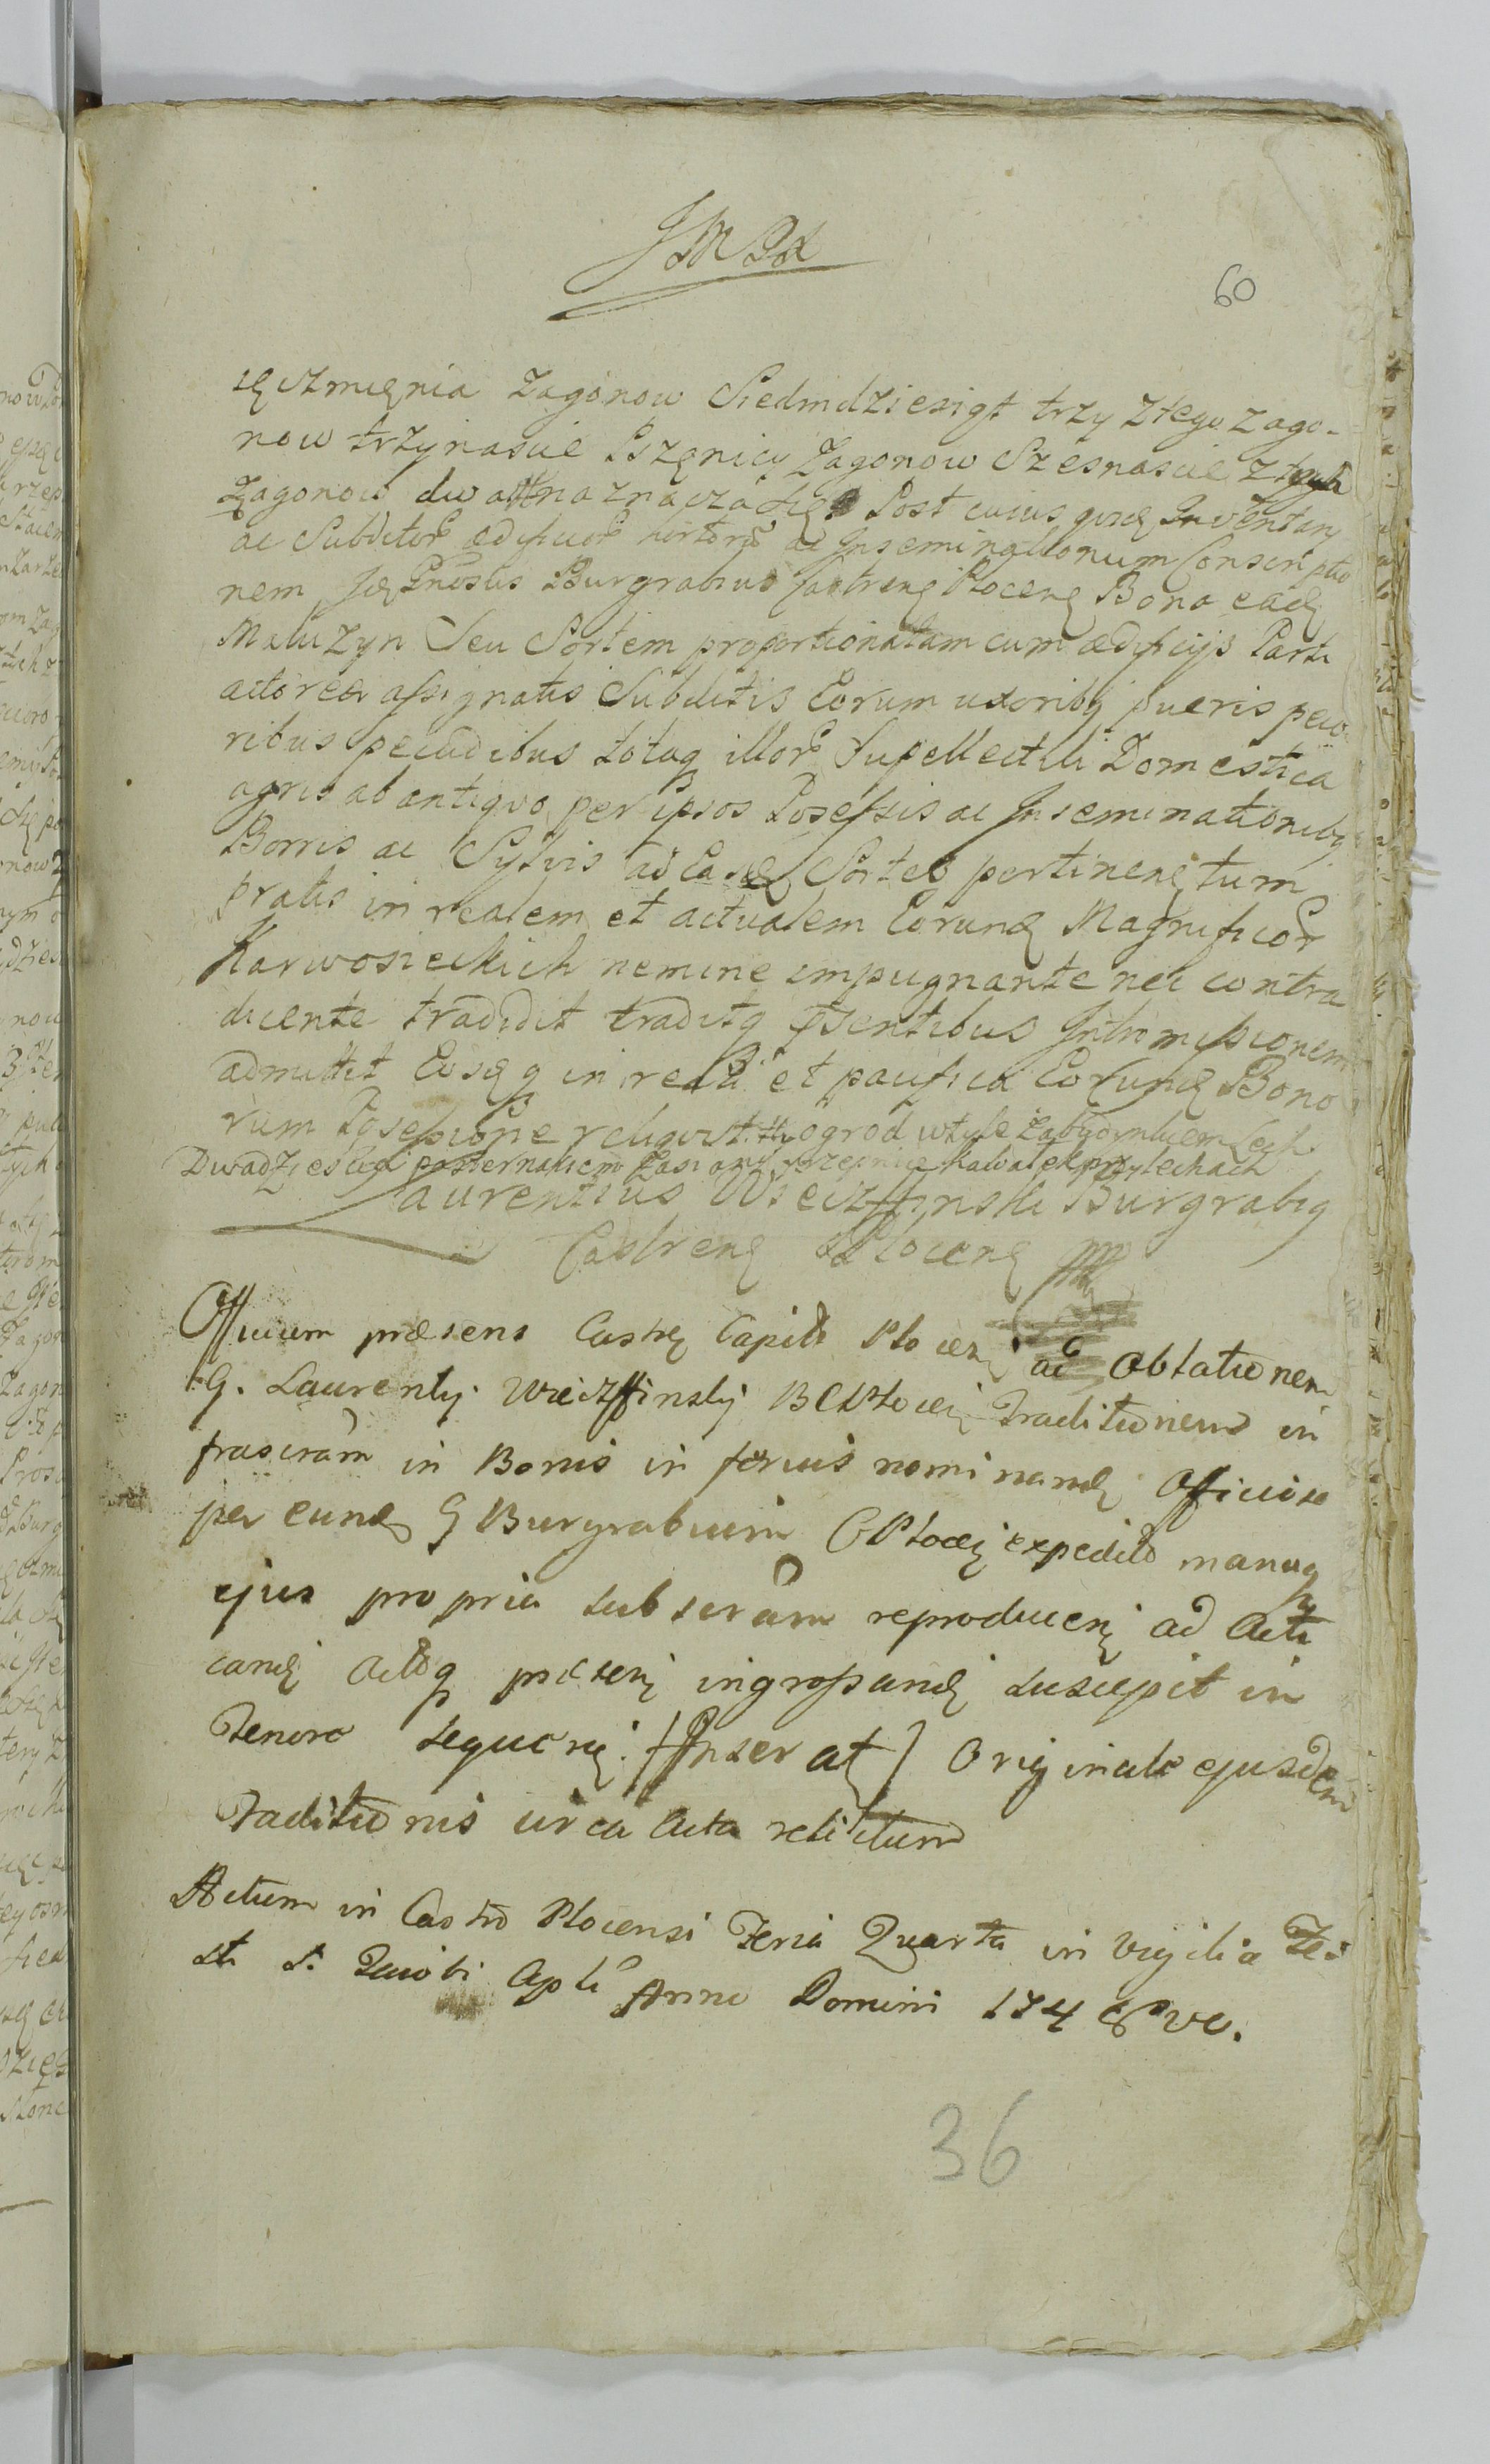 60
ięczmięnia Zagonow Siedmdziesiąt trzy z tego zago-
now trzynascie Pszęnicy Zagonow Szesnascie z tych
Zagonow dwa na znacza się Post cuius qdę Inventary
ac Subditor ædificior hortor ac Inseminationum Conscriptio
nem Burgrabius Castrenę Plocenę Bona eadę
Maluzyn Seu Sortem proportionatam cum ædificijs Parti
actorea assignatis Subditis Eorum uxoribq pueris peco
ribus pecudibus totaq illor Supellectili Domestica
agris ab antiquo per ipsos Possessis ac Inseminationibq
Borris ac Sylvis ad Easdę Sortes pertinenę tum
pratis in realem et actualem Eorundę Magnificor
Karwosieckich nemine impugnante nec contra
dicente tradidit traditq psentibus Intromissionem
admittit Eosqq in reali et pacifica Eorundę Bono
rum Possessione reliquit ogrod w tyle za
Dwadziescia kawałek przy
Laurentius Wieczffinski Burgrabiq
Castrenę Plocenę
Officium præsens Castrę Capitle Plocenę ad Oblationem
G. Laurentij Wieczffinskij BCPlocę Traditionem in
frascram in Bonis in ferius nominandę Officiose
per eundę G Burgrabium CPlocę expedita manuq
ejus propria subscram reproducenę ad Acti
candę Actisq præsenę ingrossandę suscepit in
Tenore sequenę. [Inseratę] Originale ejusdem
Traditionis circa Acta relictum
Actum in Castro Plocensi Feria Quarta in Vigilia Fes
ti S. Jacobi Apli Anno Domini 1748vo.
36